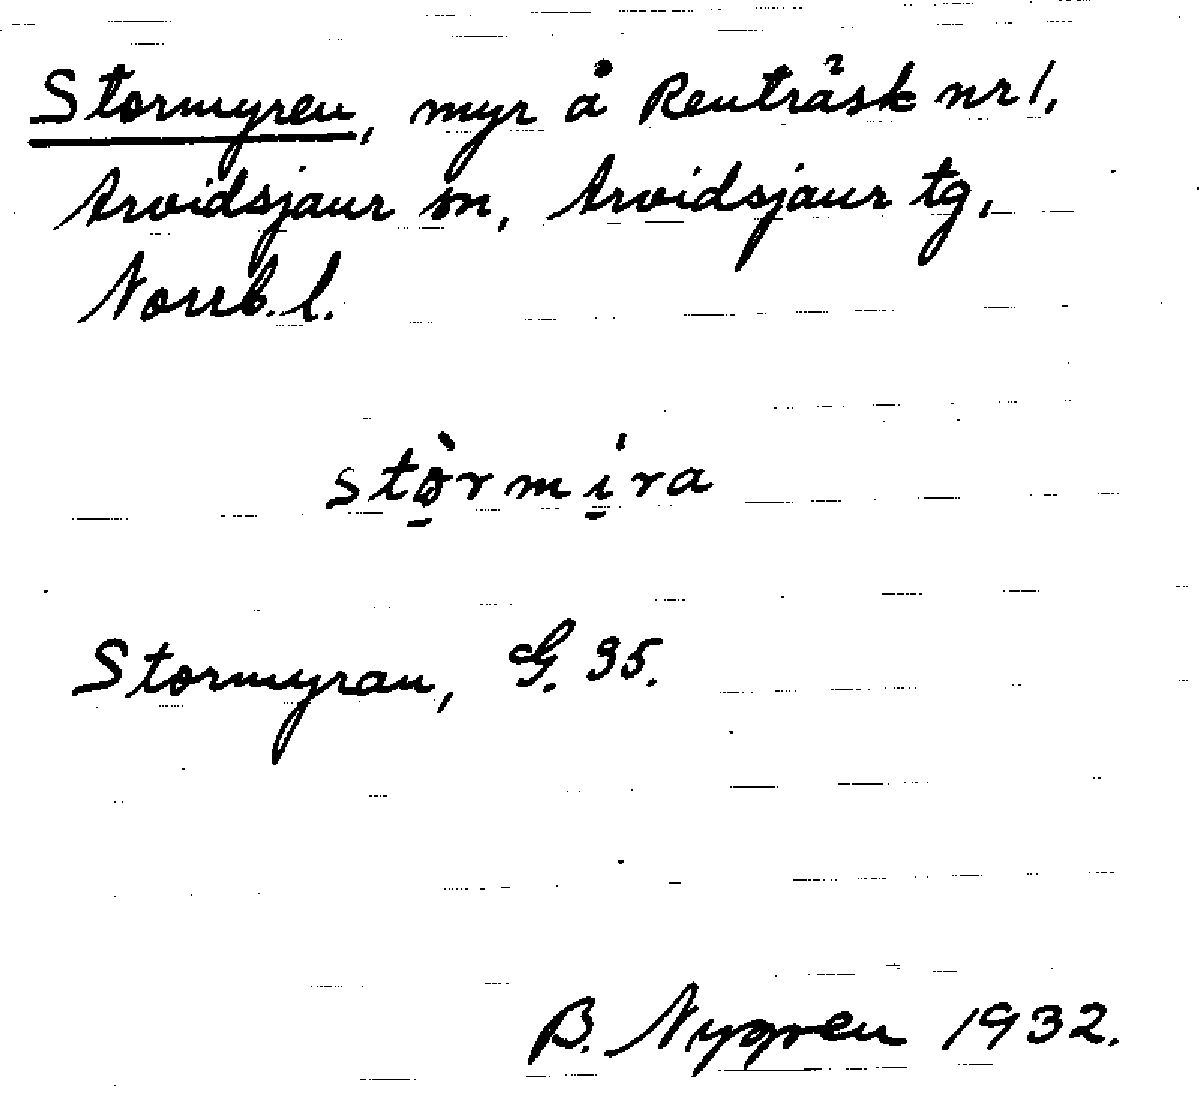 Stormyren, myr å Renträsk nr 1,
Arvidsjaur sn, Arvidsjaur tg,
Norrb. l.
stò̱rmi̱ra
Stormyran, G. 95.
B. Nygren 1932.